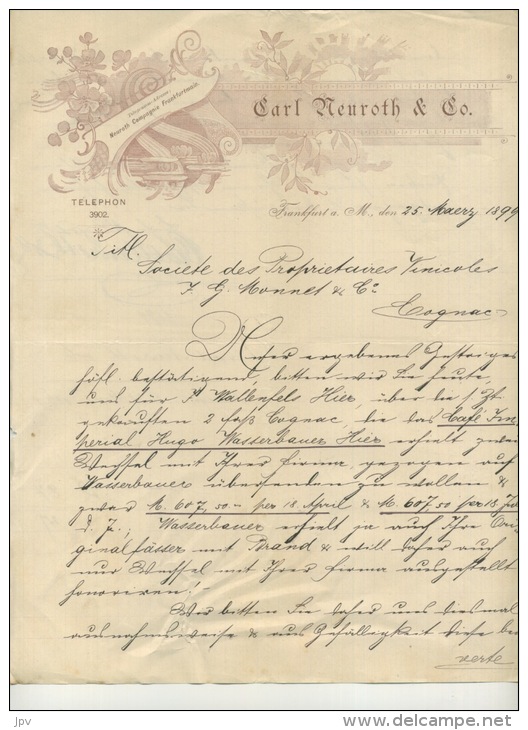 Neuroth Compagnie Frankfurtmain.
Carl Neuroth & Co.
TELEPHON
3902.
Frankfurt a. M., den 25. Maerz 1899
Titl.
Societe des Proprietaires Vinicoles
J. G. Monnet & Co
Cognac
Unser ergebenes Gestriges
höfl. bestätigend, bitten wir Sie heute,
uns für Wallenfels Hier, über die s/Zt.
gekauften 2 faß Cognac, die das Café Im-
perial, Hugo Wasserbauer Hier erhielt zwei
Wechsel mit Ihrer firma, gezogen auf
Wasserbauer übersenden zu wollen &
zwar M. 607,50.- per 18 April & M. 607.50 per 18
d. J.; Wasserbauer erhielt ja auch Ihre Ori-
ginalfässer mit Brand & will daher auch
nur Wechsel mit Ihrer firma ausgestellt
honoriren!-
Wir bitten Sie daher uns diesmal
ausnahmsweise & aus Gefälligkeit diese
verte
jpv
www.delcampe.net